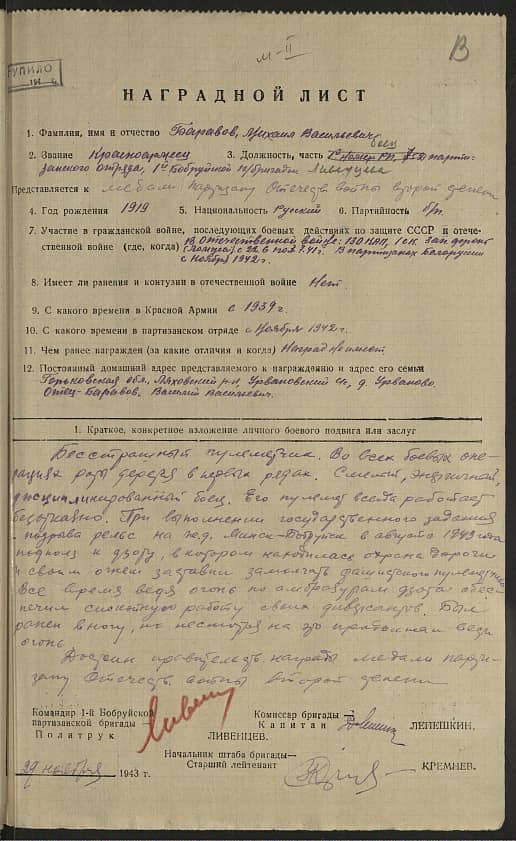 м-II
В
УПИЛО
НАГРАДНОЙ ЛИСТ
1. Фамилия, имя и отчество Баравов, Михаил Васильевич
боец
2. Звание Красноармеец 3. Должность, часть парти-
занского отряда, 1й Бобруйской п/бригады Ливенцева
Представляется к медали Партизану Отечеств. войны второй степени
4. Год рождения 1919 5. Национальность Русский 6. Партийность б/п.
7. Участие в гражданской войне, последующих боевых действиях по защите СССР и отече-
ственной войне (где, когда) В Отечественной войне: Зап. фронт
с 22.6 по 7.41г. В партизанах Белоруссии
с ноября 1942 г.
8. Имеет ли ранения и контузии в отечественной войне Нет.
9. С какого времени в Красной Армии с 1939 г.
10. С какого времени в партизанском отряде с ноября 1942 г.
11. Чем ранее награжден (за какие отличия и когда) Наград не имеет.
12. Постоянный домашний адрес представляемого к награждению и адрес его семьи
Горьковская обл., Ляховский р-н, Урвановский с/с, д. Урваново.
Отец- Баравов, Василий Васильевич.
1. Краткое, конкретное изложение личного боевого подвига или заслуг
Бесстрашный пулеметчик. Во всех боевых опе-
рациях роты дерется в первых рядах. Смелый, энергичный,
дисциплинированный боец. Его пулемет всегда работает
безотказно. При выполнении государственного задания
подрыва рельс на ж.д. Минск-Бобруйск в августе 1943 года
подполз к дзоту, в котором находилась охрана дороги
и своим огнем заставил замолчать фашистского пулеметчика.
Все время ведя огонь по амбразурам дзота обес-
печил спокойную работу своих диверсантов. Был
ранен в ногу, но несмотря на это продолжал вести
огонь.
Достоин правительств. награды медали парти-
зану Отечеств. войны второй степени
Командир 1-й Бобруйской
партизанской бригады—
Политрук ЛИВЕНЦЕВ.
Комиссар бригады—
Капитан ЛЕПЕШКИН.
Начальник штаба бригады—
Старший лейтенант КРЕМНЕВ.
29 ноября 1943 г.